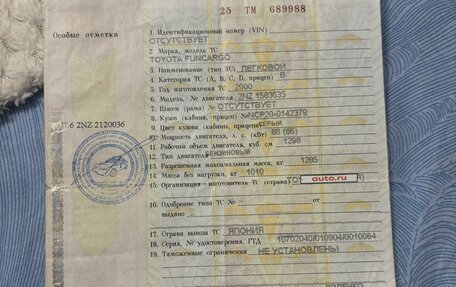 25 ТМ 689988
Особые отметки
1. Идентификационный номер (VIN)
ОТСУТСТВУЕТ
2. Марка, модель ТС
TOYOTA FUNCARGO
3. Наименование (тип ТС) ЛЕГКОВОЙ
4. Категория ТС (A, B, C, D, прицеп) B
5. Год изготовления ТС 2000
6. Модель, № двигателя 2NZ 1583635
7. Шасси (рама) № ОТСУТСТВУЕТ
8. Кузов (кабина, прицеп) № NCP20-0142379
9. Цвет кузова (кабины, прицепа) СЕРЫЙ
10. Мощность двигателя, л. с. (кВт) 88 (65)
11. Рабочий объем двигателя, куб. см 1298
12. Тип двигателя БЕНЗИНОВЫЙ
13. Разрешенная максимальная масса, кг 1285
14. Масса без нагрузки, кг 1010
15. Организация – изготовитель ТС (страна)
auto.ru
16. Одобрение типа ТС № – от
выдано –
17. Страна вывоза ТС ЯПОНИЯ
18. Серия, № удостоверения, ГТД 10702040/010904/0010064
19. Таможенные ограничения НЕ УСТАНОВЛЕНЫ
2NZ 2120036